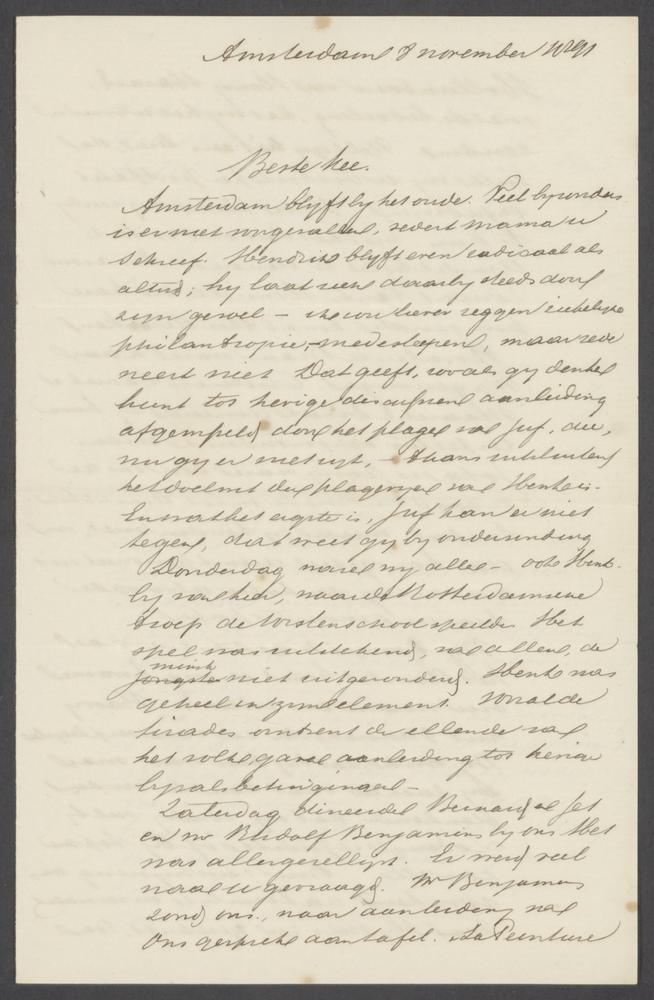 Amsterdam 8 november 1891
Beste Kee.
Amsterdam blyft by het oude. Veel byzonders
is er niet voorgevallen, sedert mama u
schreef. Hendrik blyft even radicaal als
altyd; hy laat zich daarby steeds door
zyn gevoel – ik zou liever zeggen ziekelyke
philantropie, – medeslepen, maar rede
neert niet. Dat geeft, zooals gy denken
kunt tot hevige discussien aanleiding
afgewisseld door het plagen van Juf, die,
nu gy er niet zyt, – thans uitsluitend
het doelwit der plageryen van Henk is.
En wat het ergste is, Juf kan er niet
tegen, dat weet gy by ondervinding
Donderdag waren wy allen – ook Henk
by van hier, naar de Rotterdamsche
troep de Vorstenschool speelde. Het
spel was uitstekend, van allen, de
minst
jongste niet uitgezonderd. Henk was
geheel in zyn element. Vooral de
tirades omtrent de ellende van
het volk gaven aanleiding tot hevige
byvalsbetuigingen –
Zaterdag dineerden Bernard en Jet
en mr Rudolf Benjamins by ons. Het
was allergezelligst. Er werd veel
naar u gevraagd. Mr Benjamins
zond ons, naar aanleiding van
ons gesprek aan tafel. La Peinture